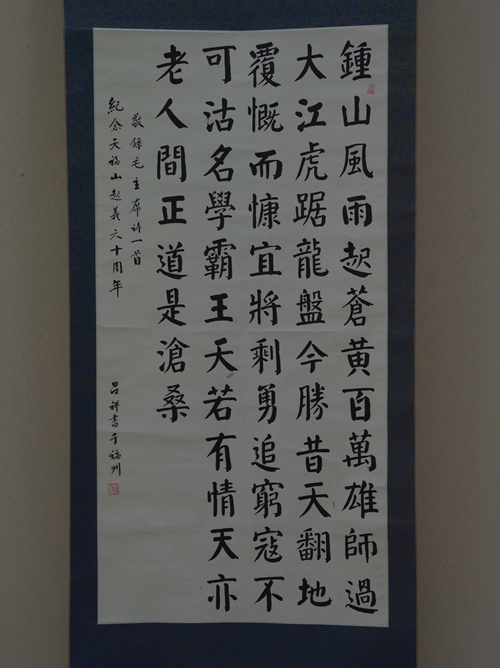 鍾山風雨起蒼黄百萬雄師過
大江虎踞龍盤今勝昔天翻地
覆慨而慷宜將剩勇追窮寇不
可沽名學霸王天若有情天亦
老人間正道是滄桑
敬錄毛主席诗一首
紀念天福山起義六十周年
呂祥書于福州